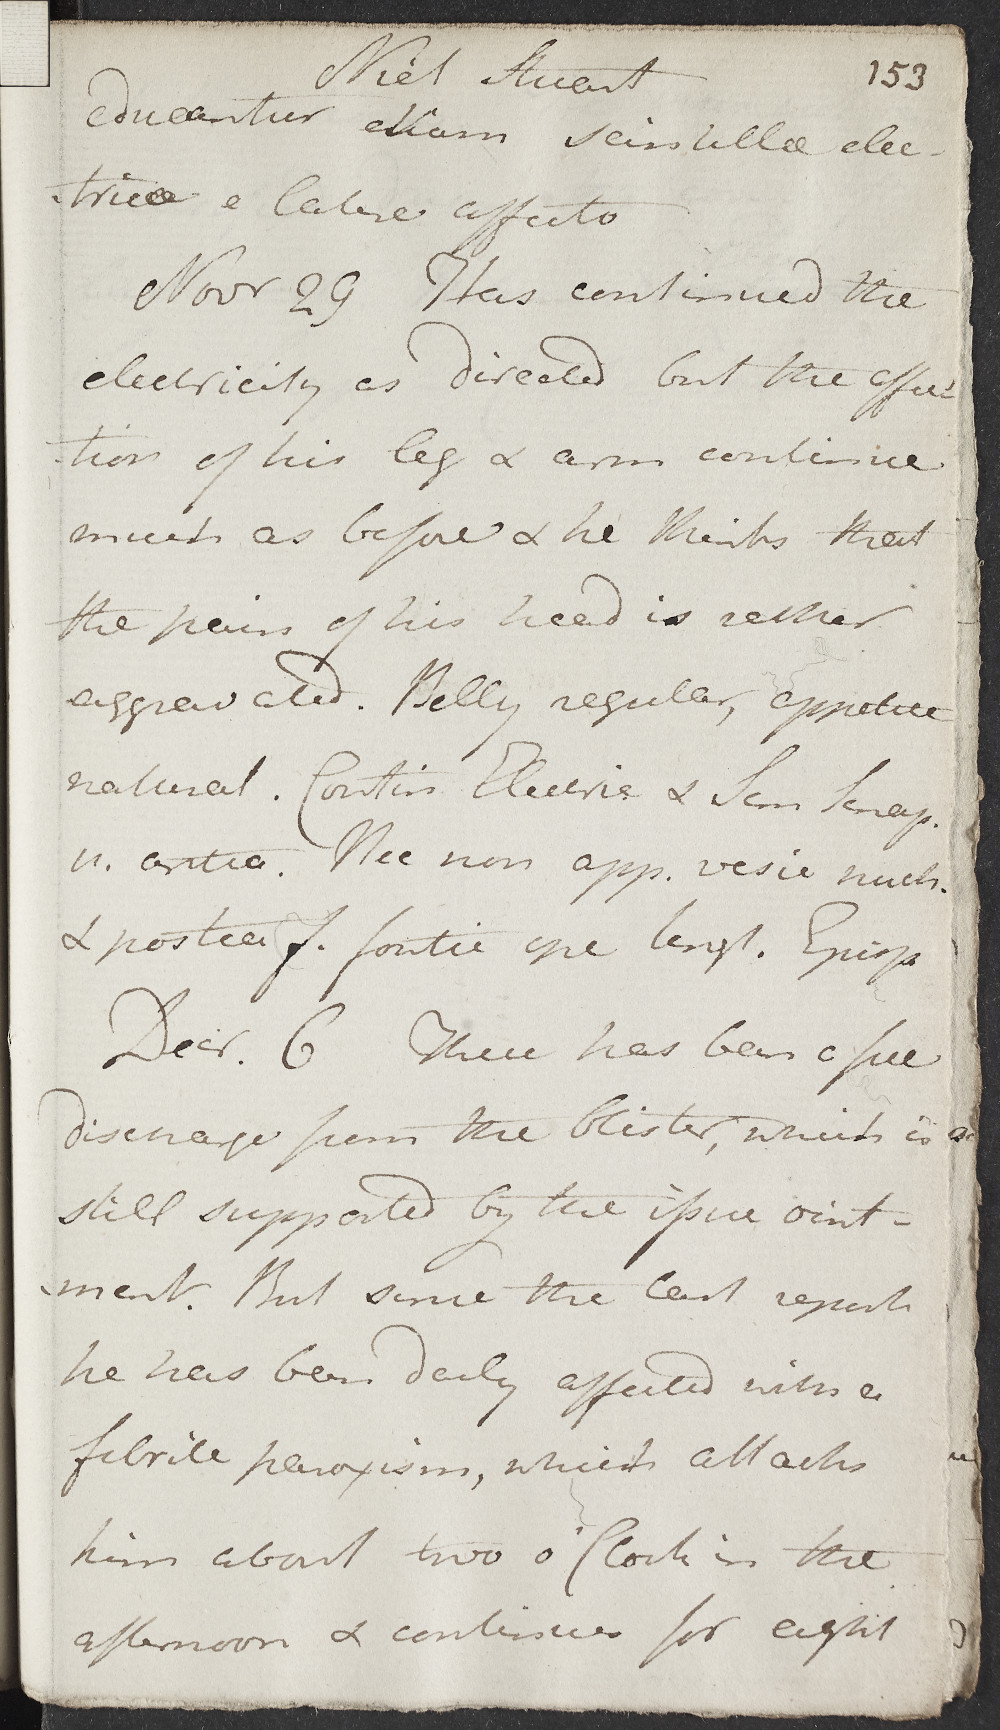 Niel Stuart 153
educantur etiam scintillæ elec-
-tricæ e latere affecto
Novr 29 Has continued the
electricity as directed but the affec-
-tion of his leg & arm continue
much as before & he thinks that
the pain of his head is rather
aggravated. Belly regular, appetite
natural. Contin Electric & Sem Sinap.
u. antea. Nec non app. vesic nuch.
& postea f. fontic ope lengt. Episp
Decr. 6 There has been a free
discharge from the blister, which is
still supported by the issue oint-
-ment. But since the last report
he has been daily affected with a
febrile paroxism, which attacks
him about two o'Clock in the
afternoon & continues for eight